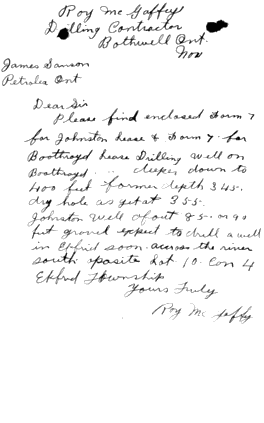 Roy Mc Gaffey
Drilling Contractor
Bothwell Ont.
Nov
James Sanson
Petrolea Ont
Dear Sir
Please find enclosed Form 7
for Johnston lease & Form 7. for
Boothroyd lease Drilling well on
Boothroyd deeper down to
400 feet former depth 345.
dry hole as yet at 355.
Johnston well about 85. or 90
feet gravel expect to drill a well
in Ekfrid soon. across the river
south oposite Lot 10. Con 4
Ekfrid Township
Yours Truly
Roy Mc Gaffey